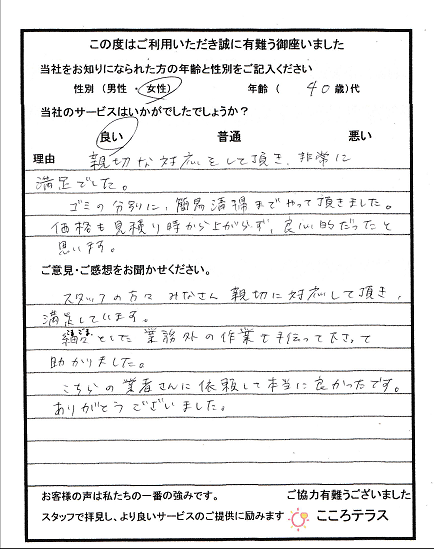 この度はご利用いただき誠に有難う御座いました
当社をお知りになられた方の年齢と性別をご記入ください
性別 (男性 ・ 女性) 年齢 ( 40 歳)代
当社のサービスはいかがでしたでしょうか？
良い 普通 悪い
理由 親切な対応をして頂き、非常に
満足でした。
ゴミの分別に、簡易清掃までやって頂きました。
価格も見積り時から上がらず、良心的だったと
思います。
ご意見・ご感想をお聞かせください。
スタッフの方々みなさん親切に対応して頂き、
満足しています。
細々とした業務外の作業も手伝って下さって
助かりました。
こちらの業者さんに依頼して本当に良かったです。
ありがとうございました。
お客様の声は私たちの一番の強みです。 ご協力有難うございました
スタッフで拝見し、より良いサービスのご提供に励みます こころテラス